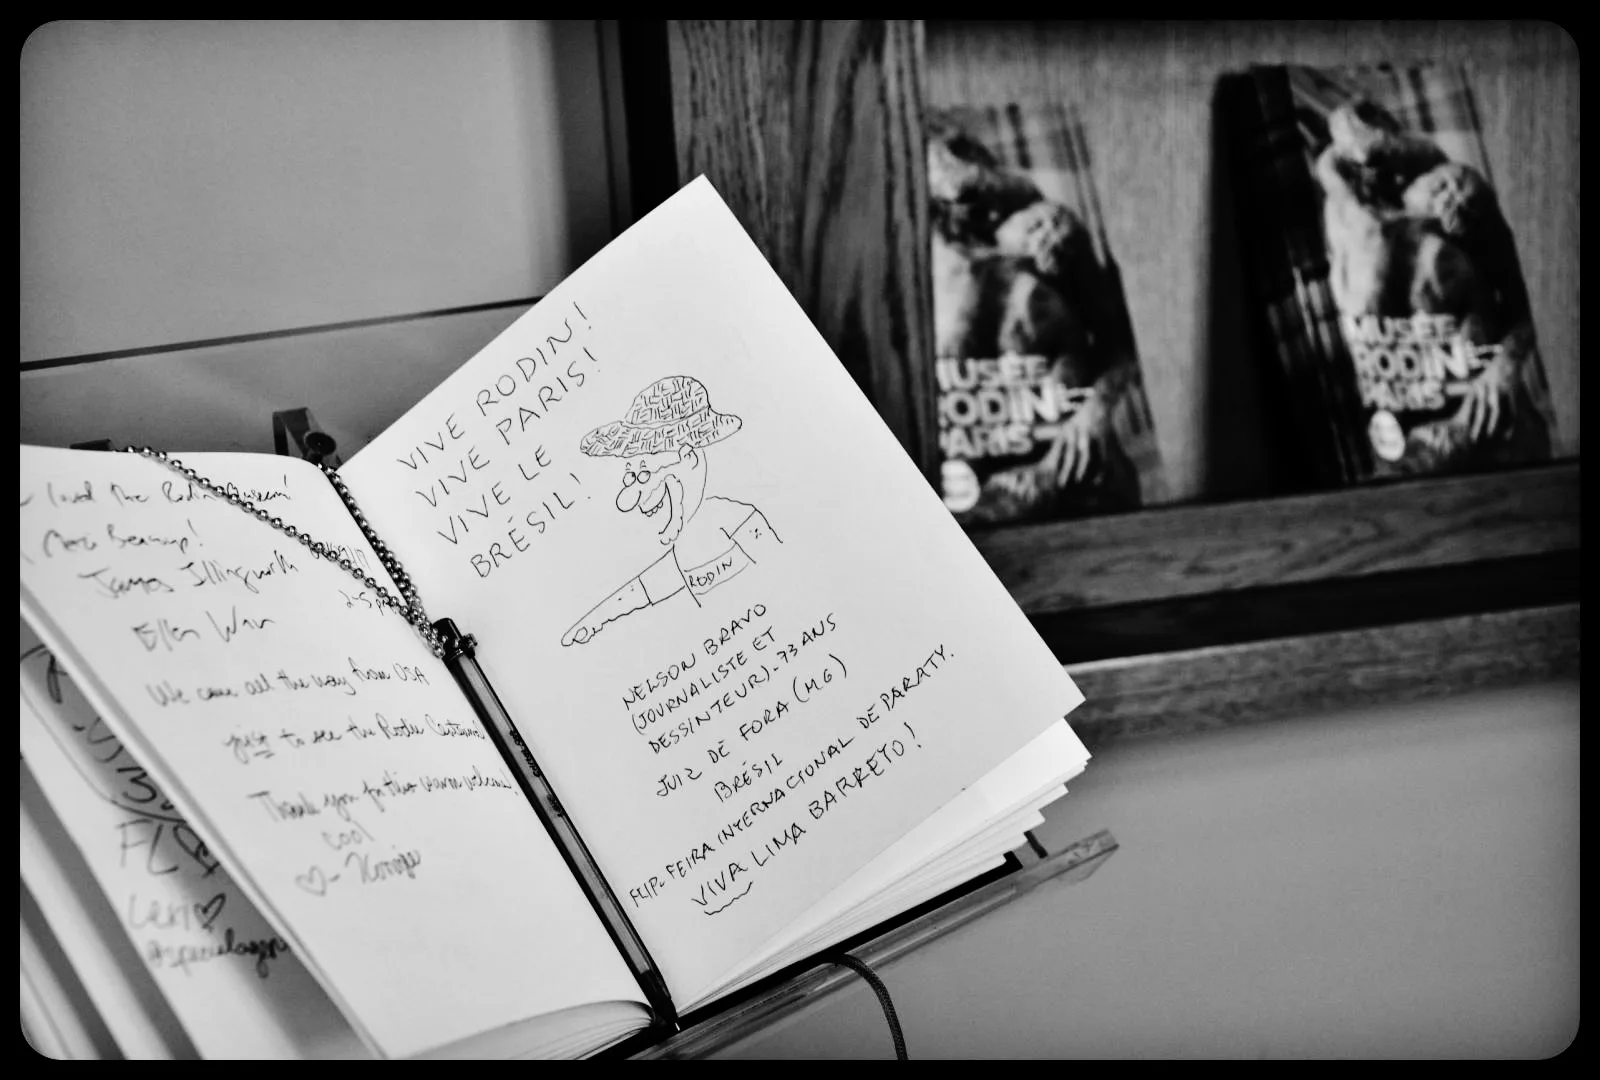 loved the Rodin Museum!
James Illingworth
Ellen
2-5 pm
We came all the way from USA
just to see the Rodin
Thank you for this warm welcome!
cool
VIVE RODIN!
VIVE PARIS!
VIVE LE
BRÉSIL!
RODIN
NELSON BRAVO
(JOURNALISTE ET
DESSINTEUR)-73 ANS
JUIZ DE FORA (M.G)
BRÉSIL
FLIP-FEIRA INTERNACIONAL DE PARATY.
VIVA LIMA BARRETO!
FL
MUSÉE
RODIN
PARIS
MUSÉE
RODIN
PARIS